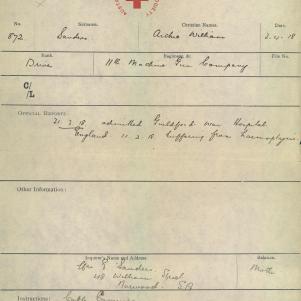 No. Surname. Christian Names.
872 Sanders Archie William 2.4.18
Rank. Regiment &c. File No.
Driver 11th Machine Gun Company
C/
/L
OFFICIAL REPORTS:
21.3.18 admitted Guildford War Hospital
England 11.3.18 suffering from haemoptysis
Other Information:
Inquirer's Name and Address Relation.
Mrs E Sanders Mother
48 William Street
Norwood. S.A
Instructions: